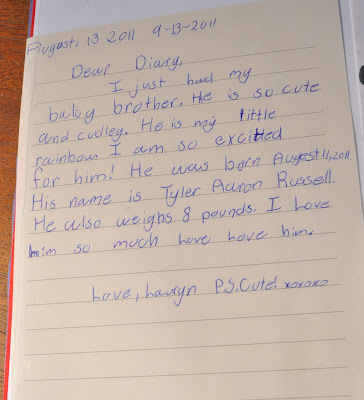 August, 13 2011 9-13-2011
Dear Diary,
I just had my
baby brother. He is so cute
and cudley. He is my little
rainbow. I am so excited
for him! He was born Augest 11, 2011.
His name is Tyler Aaron Russell.
He also weighs 8 pounds. I Love
him so much Love Love him.
Love, Lauryn P.S. Cute! xoxoxo